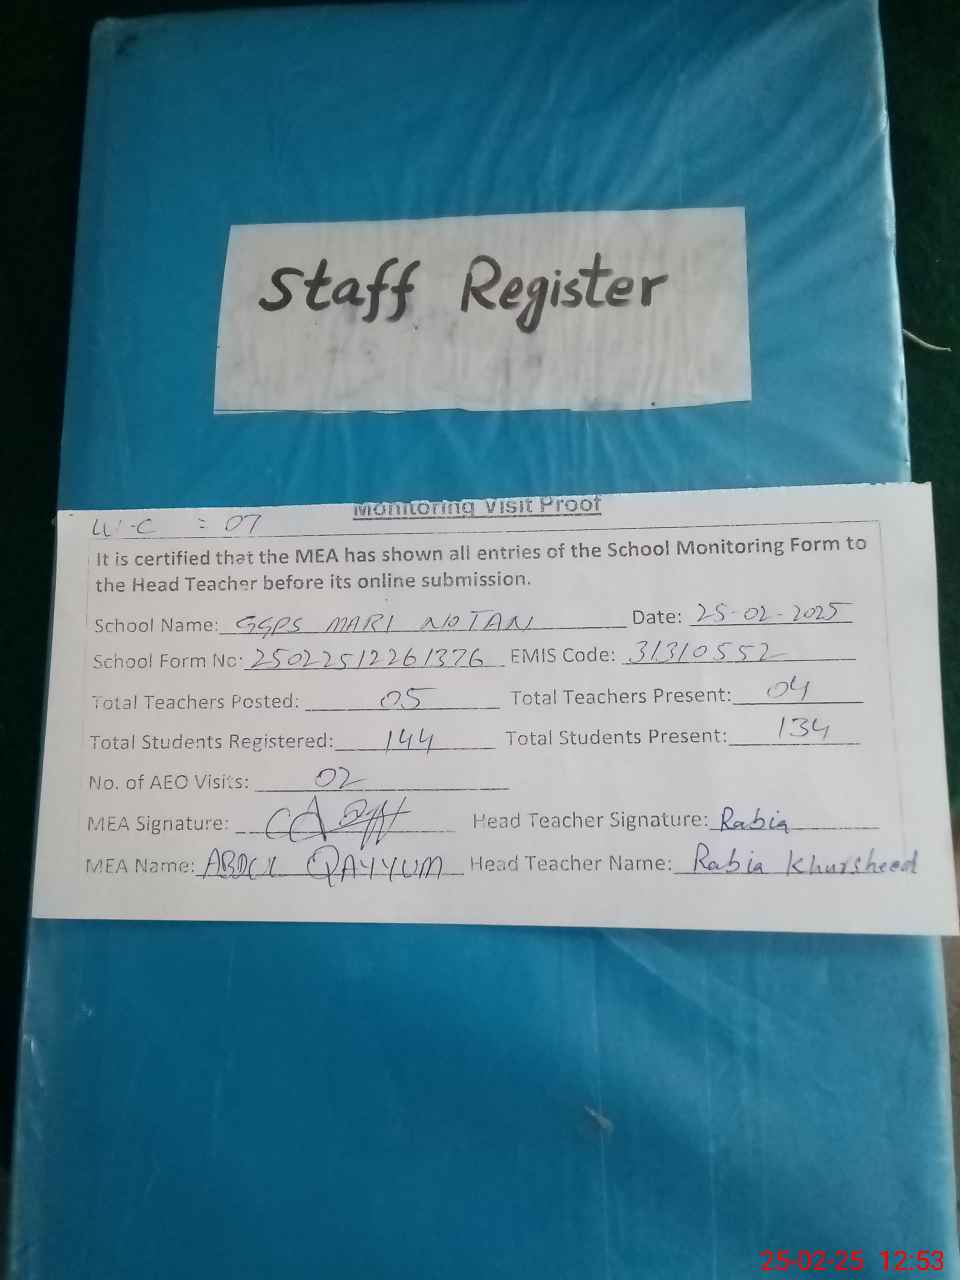 Staff Register
Monitoring Visit Proof
W-C : 07
It is certified that the MEA has shown all entries of the School Monitoring Form to
the Head Teacher before its online submission.
School Name: GGPS MARI NOTAN Date: 25-02-2025
School Form No: 25022512261376 EMIS Code: 31310552
Total Teachers Posted: 05 Total Teachers Present: 04
Total Students Registered: 144 Total Students Present: 134
No. of AEO Visits: 02
MEA Signature: Head Teacher Signature: Rabia
MEA Name: ABDUL QAYYUM Head Teacher Name: Rabia Khursheed
25-02-25 12:53